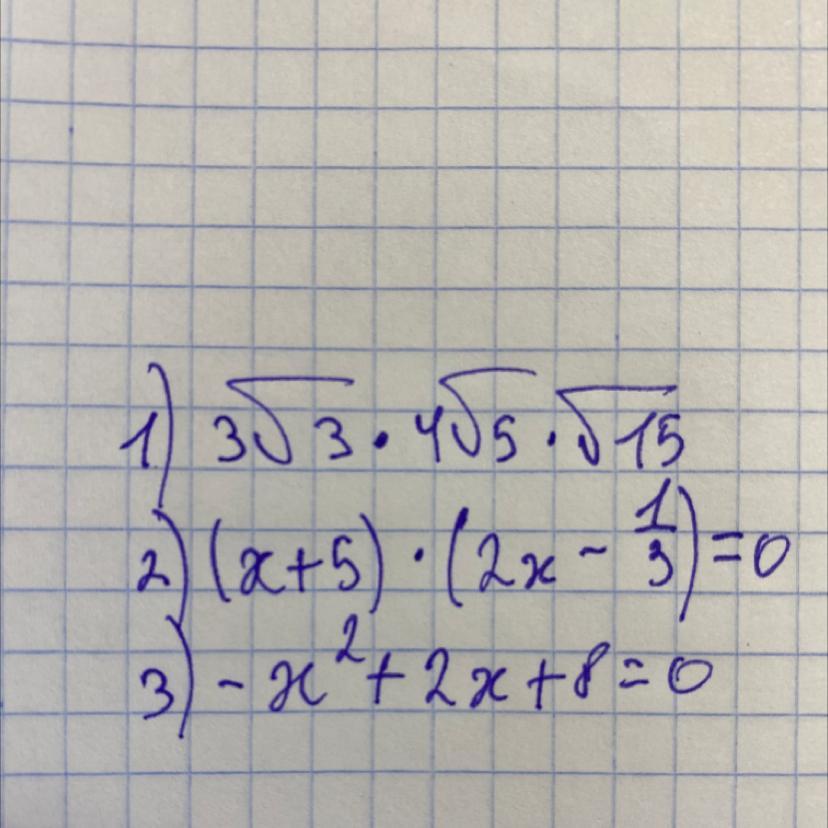 1) 3√3 · 4√5 · √15
2) (x+5) · (2x - 1/3) = 0
3) -x² + 2x + 8 = 0